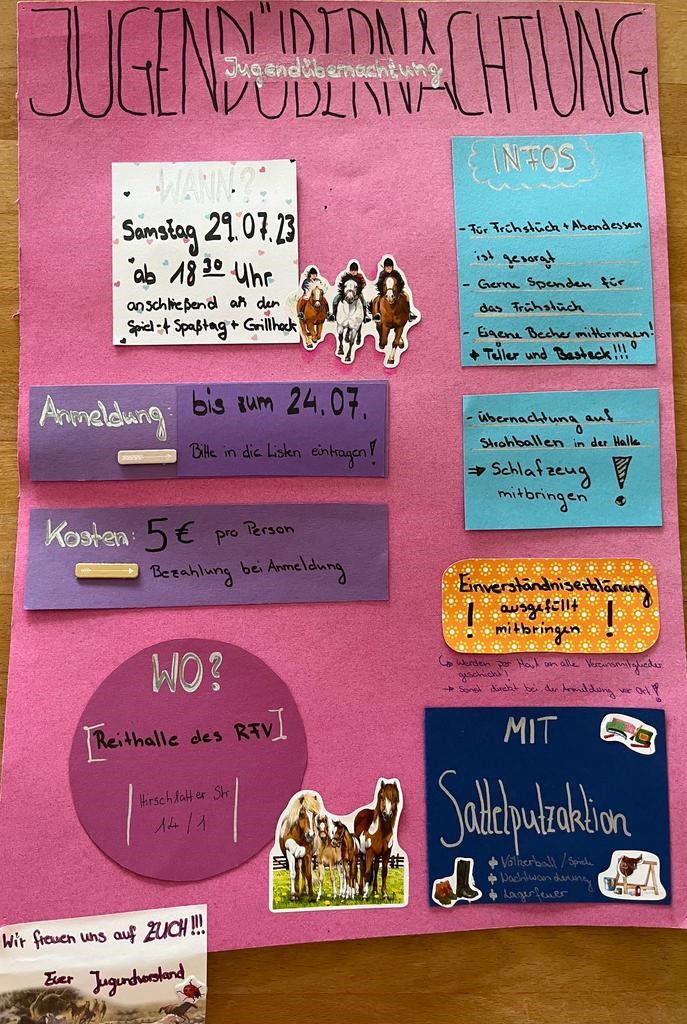 JUGENDÜBERNACHTUNG
Jugendübernachtung
WANN?
Samstag 29.07.23
ab 18³⁰ Uhr
anschließend an den
Spiel-+ Spaßtag + Grillhock
INFOS
- Für Frühstück + Abendessen
ist gesorgt
- Gerne Spenden für
das Frühstück
- Eigene Becher mitbringen!
+ Teller und Besteck!!!
Anmeldung:
bis zum 24.07.
Bitte in die Listen eintragen!
- Übernachtung auf
Strohballen in der Halle
⇒ Schlafzeug
mitbringen !
Kosten: 5€ pro Person
Bezahlung bei Anmeldung
Einverständniserklärung
! ausgefüllt !
mitbringen
↳ Werden per Mail an alle Vereinsmitglieder
geschickt!
→ Sonst direkt bei der Anmeldung vor Ort!
WO?
[Reithalle des RFV]
Hirschlatter Str.
14/1
MIT
Sattelputzaktion
+ Völkerball / Spiele
+ Nachtwanderung
+ Lagerfeuer
Wir freuen uns auf EUCH!!!
Euer Jugendvorstand